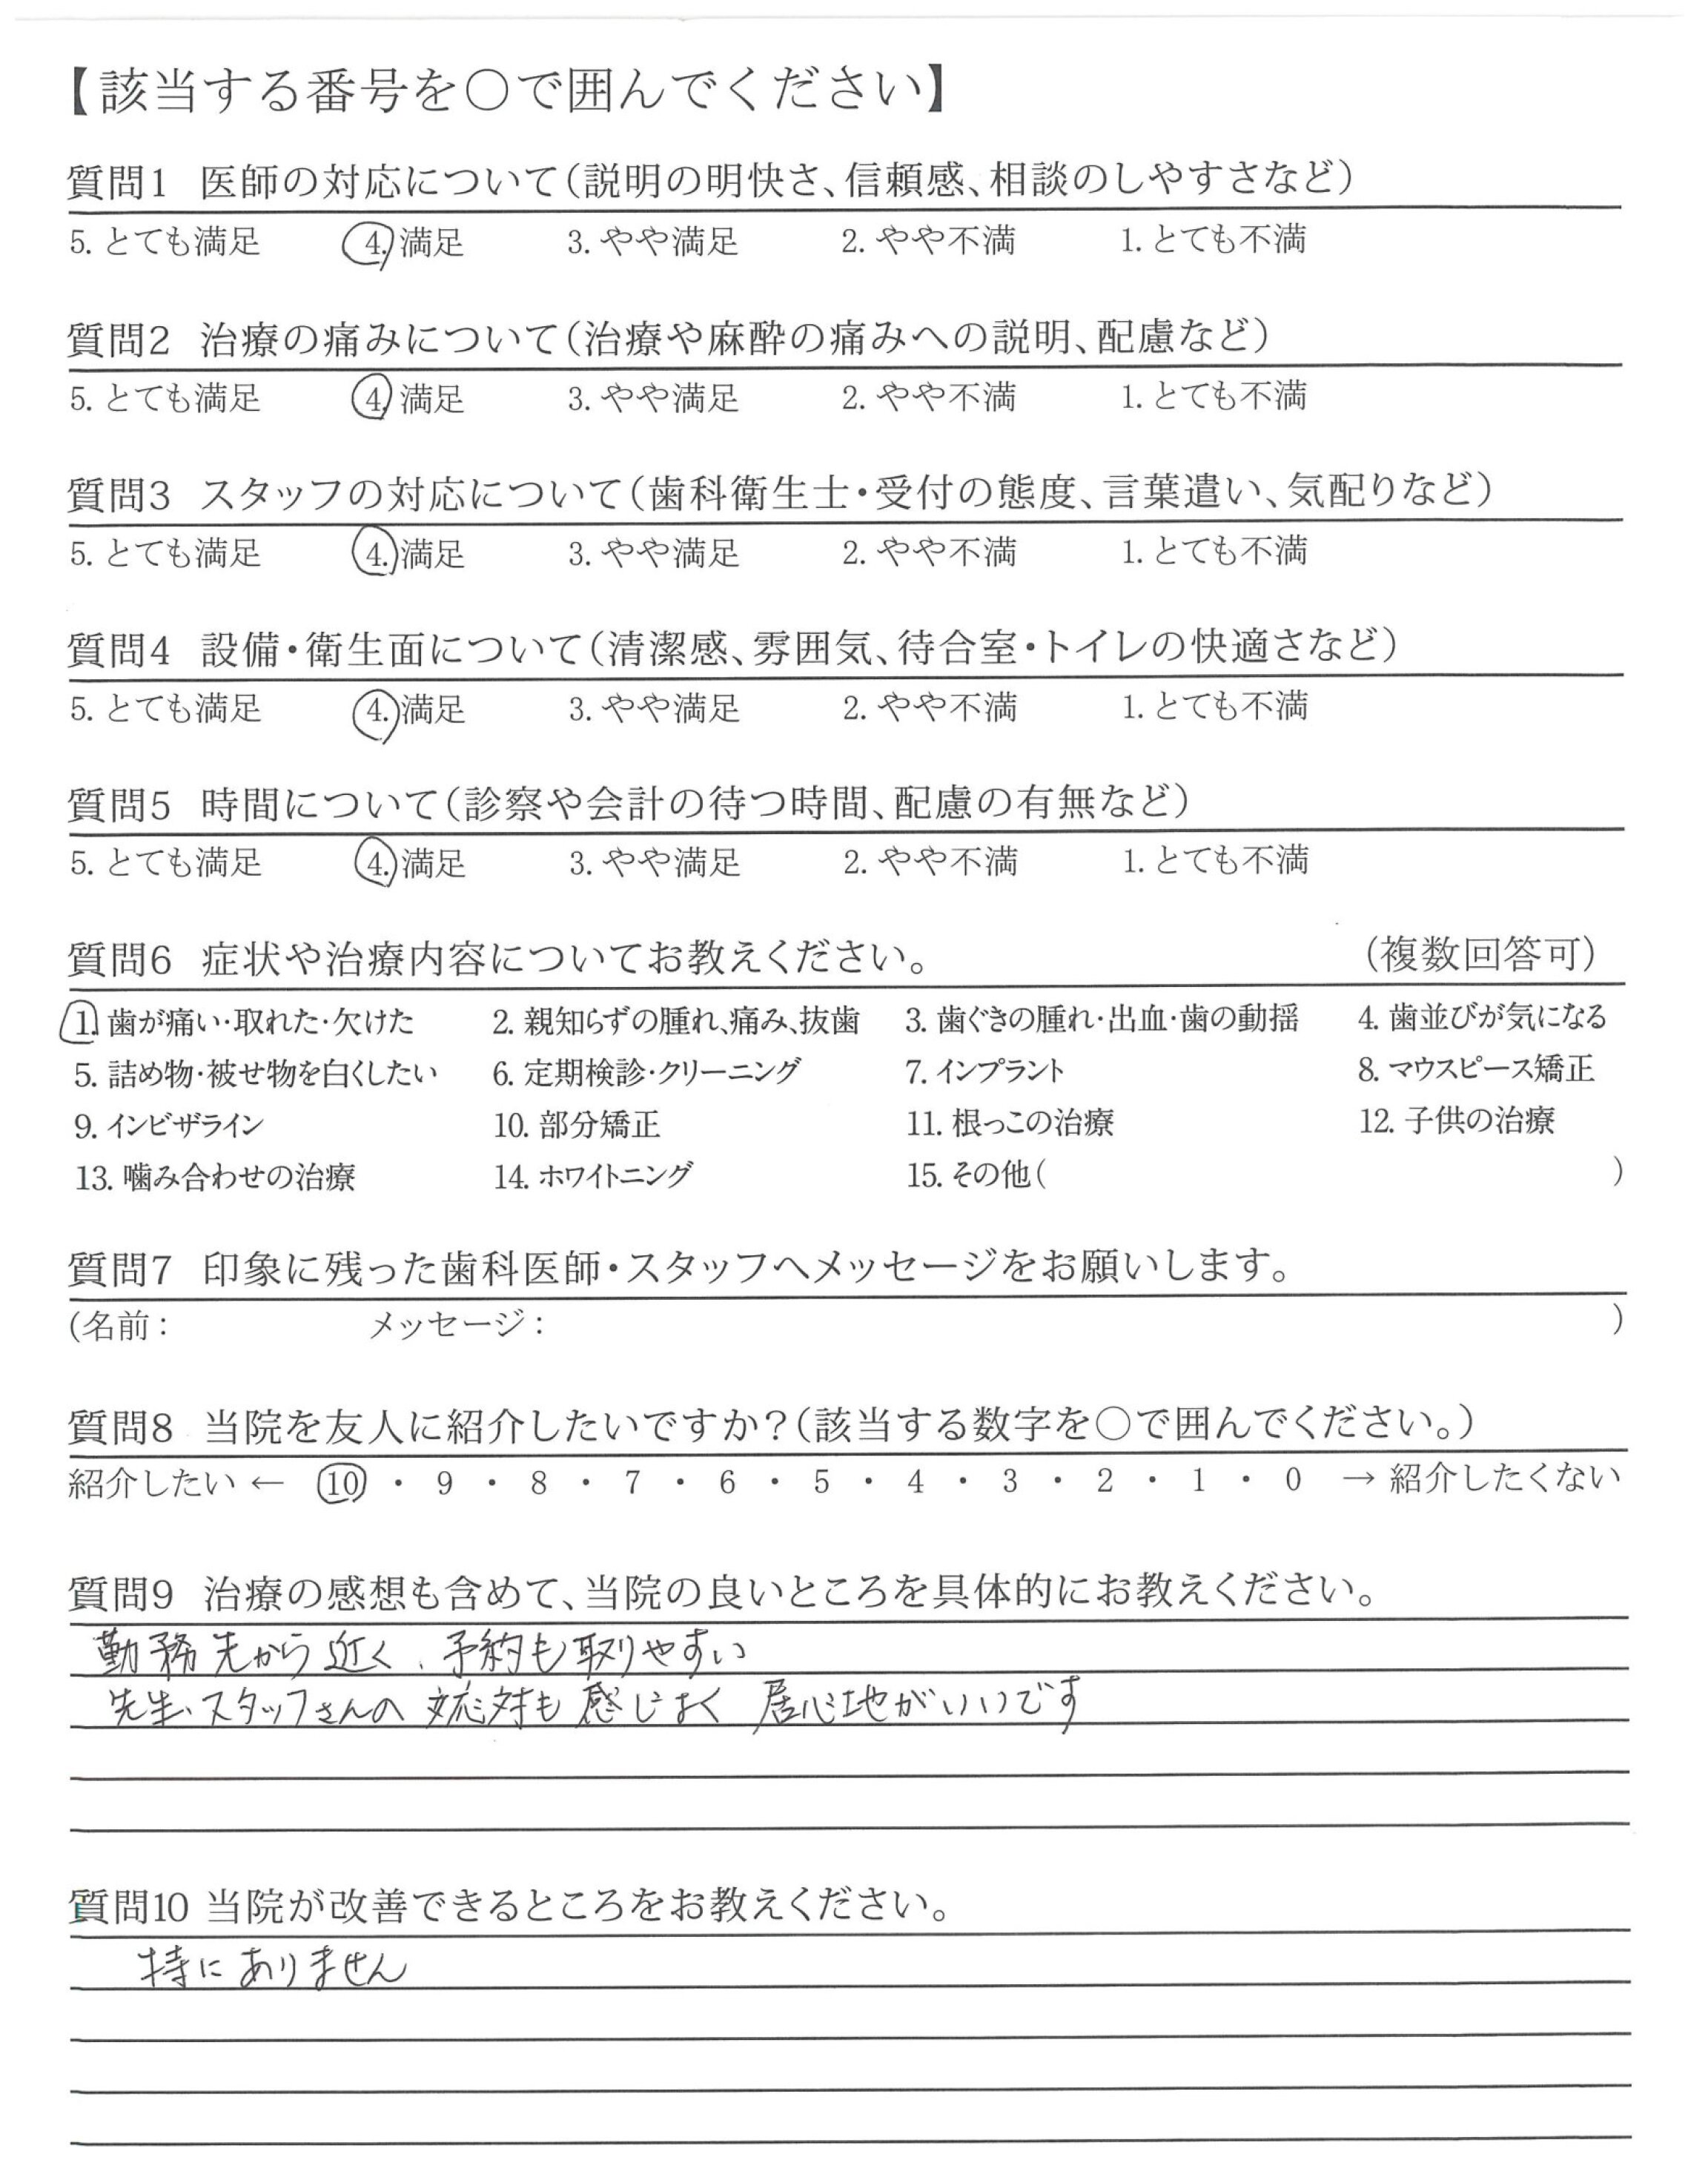 【該当する番号を○で囲んでください】
質問1 医師の対応について(説明の明快さ、信頼感、相談のしやすさなど)
5. とても満足 4. 満足 3. やや満足 2. やや不満 1. とても不満
質問2 治療の痛みについて(治療や麻酔の痛みへの説明、配慮など)
5. とても満足 4. 満足 3. やや満足 2. やや不満 1. とても不満
質問3 スタッフの対応について(歯科衛生士・受付の態度、言葉遣い、気配りなど)
5. とても満足 4. 満足 3. やや満足 2. やや不満 1. とても不満
質問4 設備・衛生面について(清潔感、雰囲気、待合室・トイレの快適さなど)
5. とても満足 4. 満足 3. やや満足 2. やや不満 1. とても不満
質問5 時間について(診察や会計の待つ時間、配慮の有無など)
5. とても満足 4. 満足 3. やや満足 2. やや不満 1. とても不満
質問6 症状や治療内容についてお教えください。 (複数回答可)
1. 歯が痛い・取れた・欠けた 2. 親知らずの腫れ、痛み、抜歯 3. 歯ぐきの腫れ・出血・歯の動揺 4. 歯並びが気になる
5. 詰め物・被せ物を白くしたい 6. 定期検診・クリーニング 7. インプラント 8. マウスピース矯正
9. インビザライン 10. 部分矯正 11. 根っこの治療 12. 子供の治療
13. 噛み合わせの治療 14. ホワイトニング 15. その他( )
質問7 印象に残った歯科医師・スタッフへメッセージをお願いします。
(名前: メッセージ: )
質問8 当院を友人に紹介したいですか?(該当する数字を○で囲んでください。)
紹介したい ← 10 ・ 9 ・ 8 ・ 7 ・ 6 ・ 5 ・ 4 ・ 3 ・ 2 ・ 1 ・ 0 → 紹介したくない
質問9 治療の感想も含めて、当院の良いところを具体的にお教えください。
勤務先から近く、予約も取りやすい
先生、スタッフさんの対応も感じよく 居心地がいいです
質問10 当院が改善できるところをお教えください。
特にありません